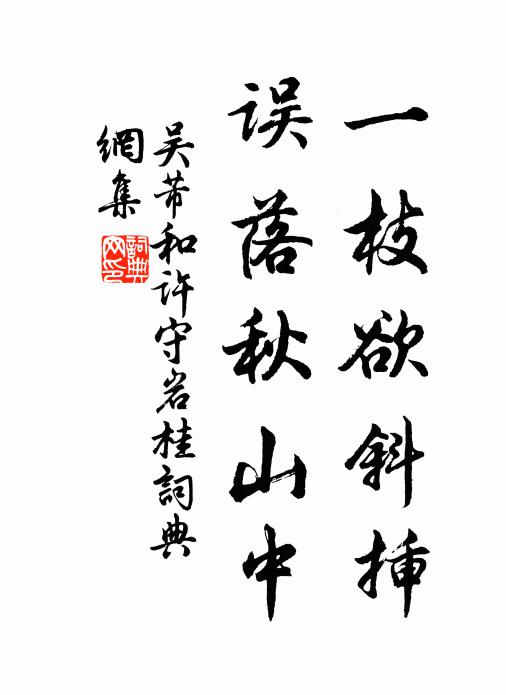 一枝欲斜插
误落秋山中
吴芾和许守岩桂詞典
網集
詞典
网印